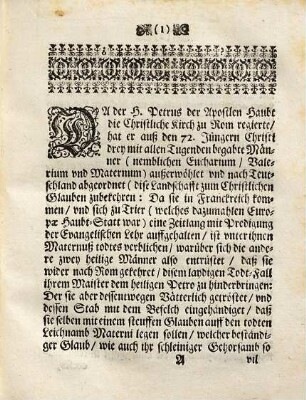 (1)
DA der H. Petrus der Apostlen Haubt
die Christliche Kirch zu Rom regierte/
hat er auß den 72. Jüngern Christi
drey mit allen Tugenden begabte Män-
ner ( nemblichen Eucharium / Vale-
rium und Maternum) außerwöhlet und nach Teut-
schland abgeordnet ( dise Landschafft zum Christlichen
Glauben zubekehren: Da sie in Franckreich kom-
men / und sich zu Trier ( welches dazumahlen Euro-
pæ Haubt-Statt war) eine Zeitlang mit Predigung
der Evangelischen Lehr auffgehalten / ist unter ihnen
Maternus todtes verblichen / warüber sich die ande-
re zwey heilige Männer also entrüstet / daß sie
wider nach Rom gekehret / disem laydigen Todt-Fall
ihrem Maister dem heiligen Petro zu hinderbringen:
Der sie aber dessentwegen Vätterlich getröstet / und
dessen Stab mit dem Befelch eingehändiget / daß
sie selben mit einem steuffen Glauben auff den todten
Leichnamb Materni legen sollen / welcher beständi-
ger Glaub / wie auch ihr schleiniger Gehorsamb so
A vil